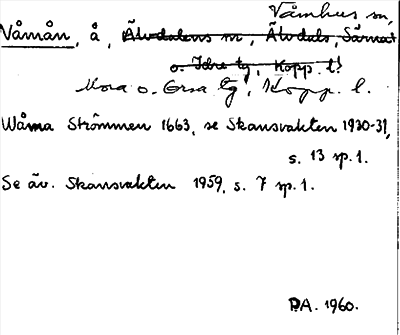 Våmhus sn,
Våmån, å, Älvdalens sn, Älvdals, Särna
o. Idre tg, Kopp. l.
Mora o. Orsa tg, Kopp. l.
Wåma Strömmen 1663, se Skansvakten 1930-31,
s. 13 sp. 1.
Se äv. Skansvakten 1959, s. 7 sp. 1.
D.A. 1960.